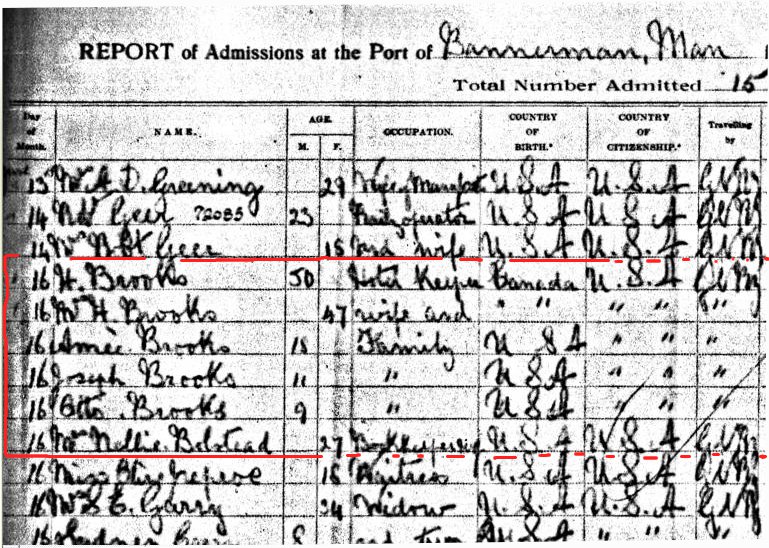 REPORT of Admissions at the Port of Bannerman, Man
Total Number Admitted 15
Day of Month. NAME. AGE. M. F. OCCUPATION. COUNTRY OF BIRTH.* COUNTRY OF CITIZENSHIP.* Travelling by
13 Mrs A. D. Greening 29 Wife U.S.A U.S.A
14 Geer 72085 23 operator U.S.A U.S.A
14 Mrs Rbt Geer 18 and wife U.S.A U.S.A
16 H. Brooks 50 Hotel Keeper Canada U.S.A
16 Mrs H. Brooks 47 wife and " " " "
16 Amée Brooks 18 Family U S A " " "
16 Joseph Brooks 11 " U S A " " "
16 Otto Brooks 9 " U S A " " "
16 Mrs Nellie Belstead 27 U.S.A U.S.A
16 Miss 18 Waitress U.S.A U.S.A
16 Mrs S. E. Garry 24 Widow U.S.A U.S.A
8